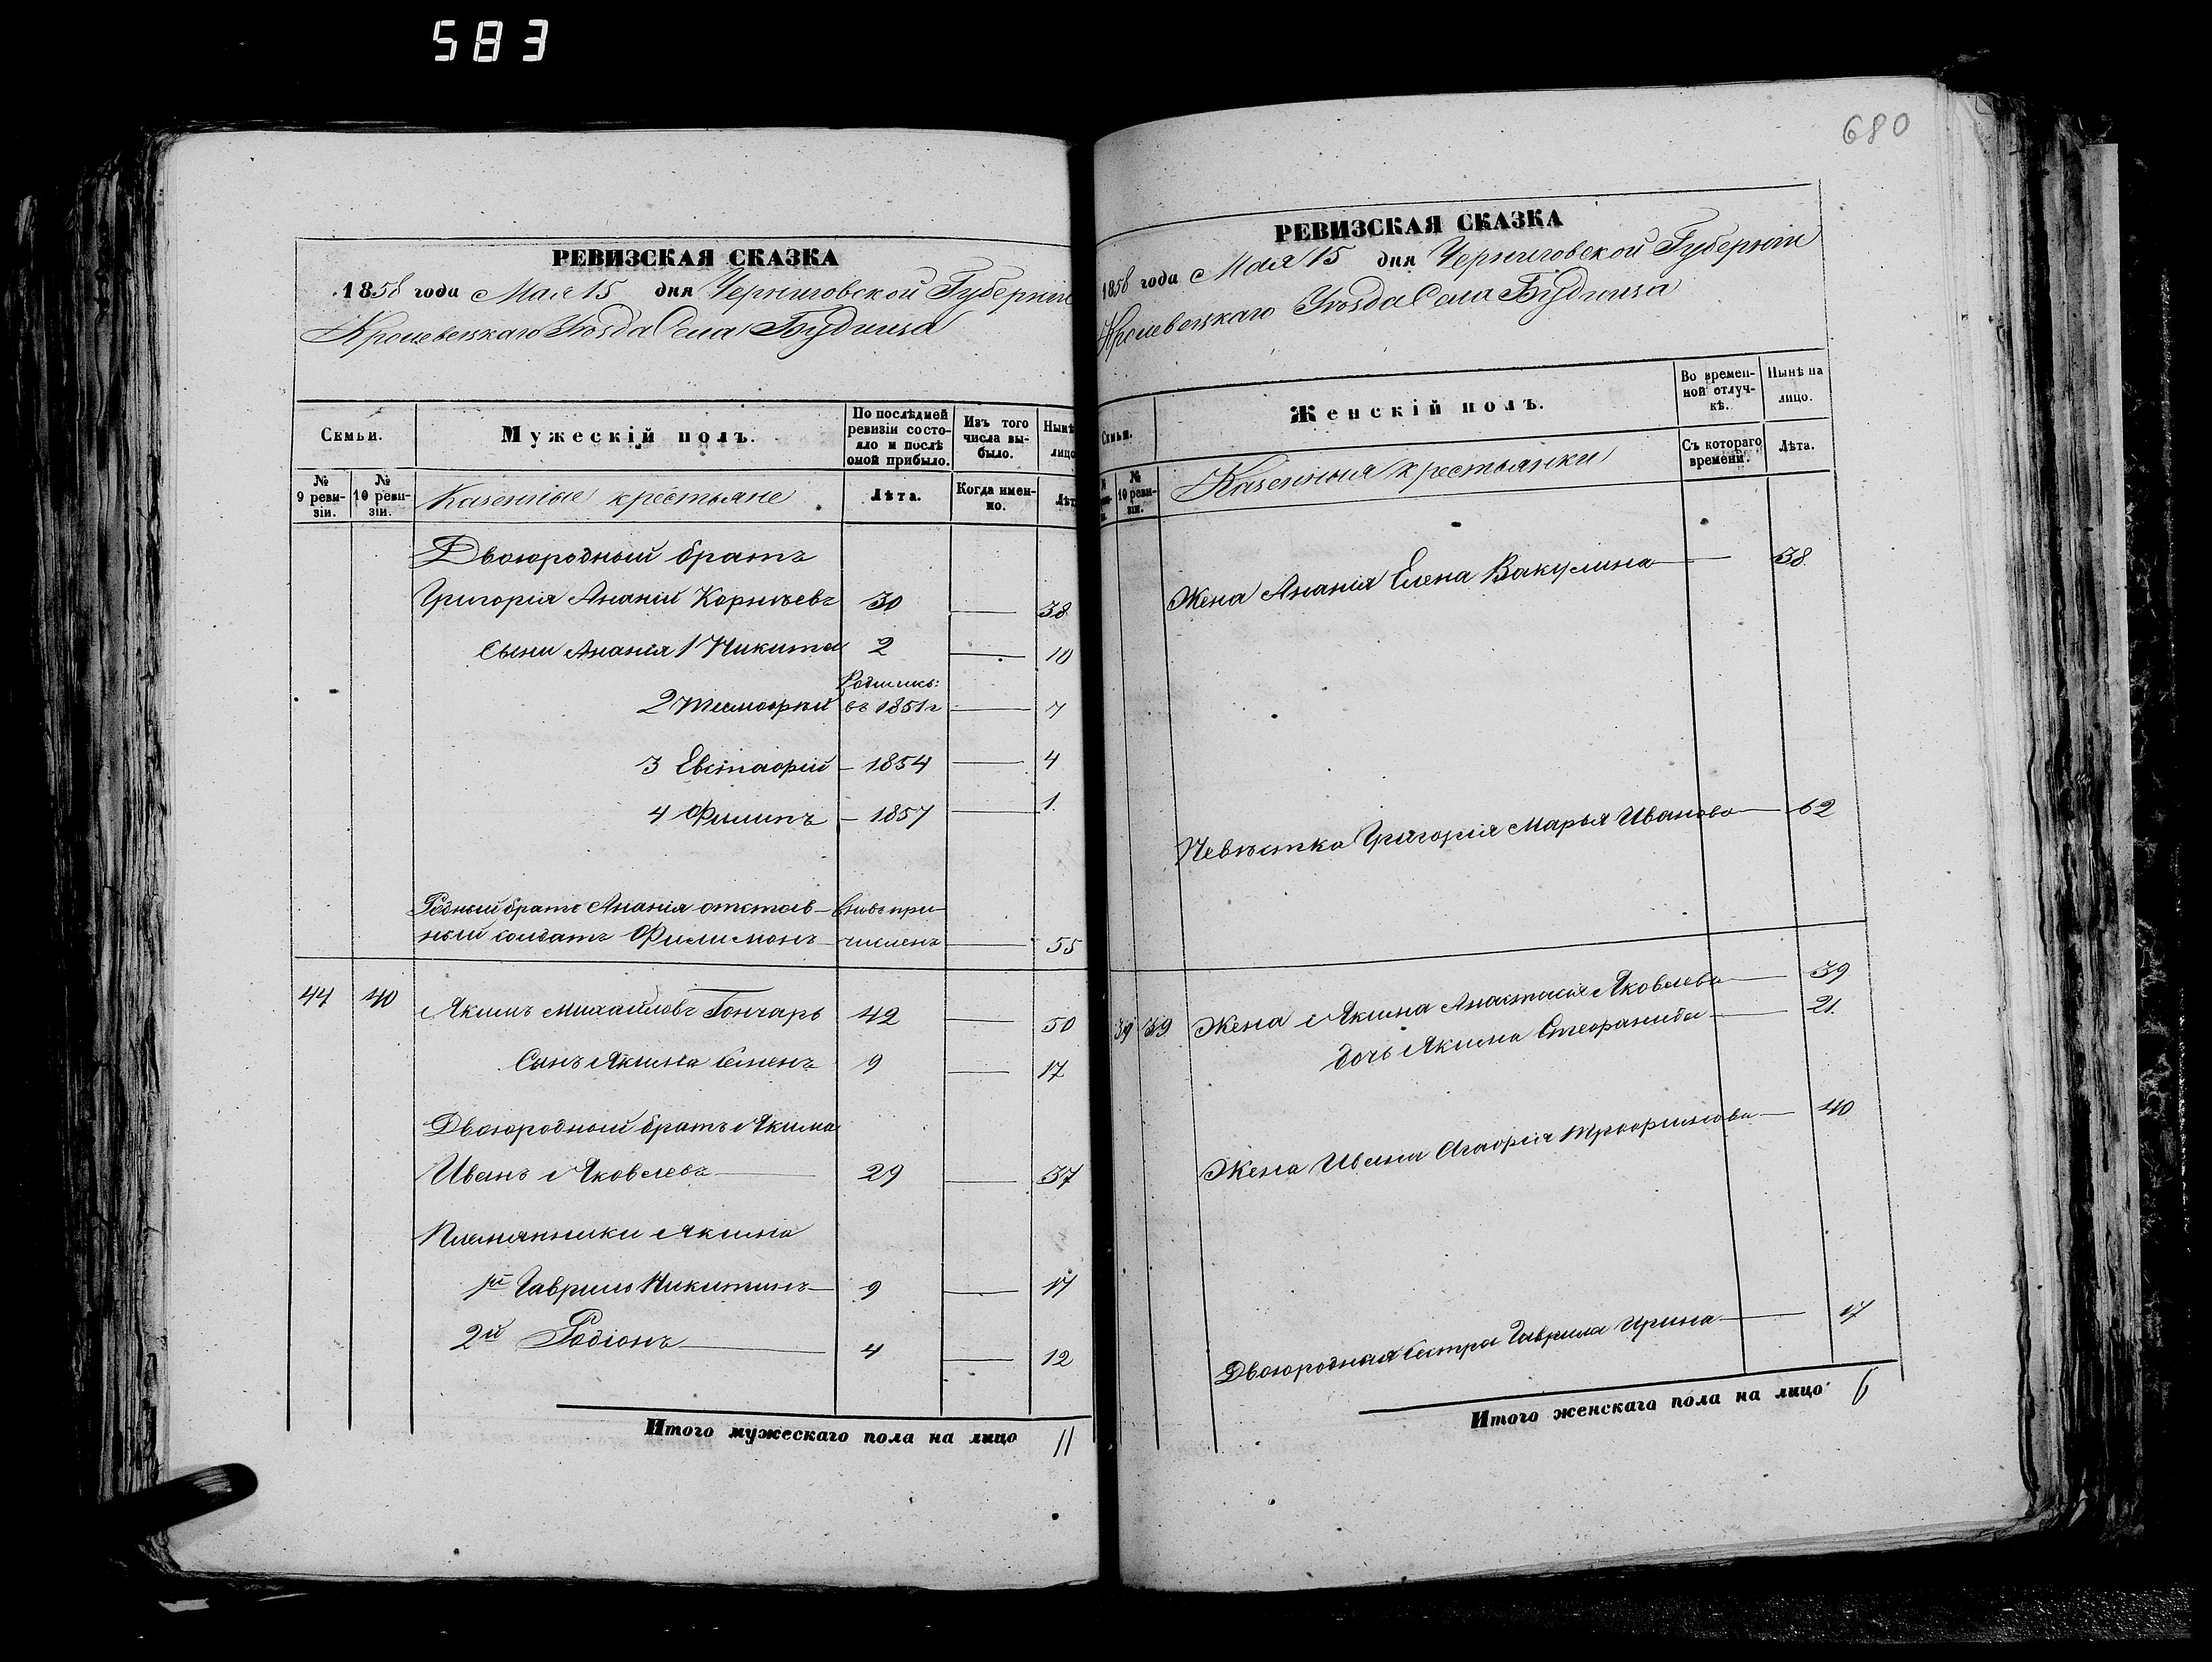 583
680
РЕВИЗСКАЯ СКАЗКА
1858 года Мая 15 дня Черниговской Губерніи
Кролевецкаго Уѣзда Села Будища
Семьи.
Мужескій полъ.
По послѣдней ревизіи состояло и послѣ оной прибыло.
Изъ того числа выбыло.
Нынѣ лицо
№ 9 ревизіи.
№ 10 ревизіи.
Казенные крестьяне
Лѣта.
Когда именно.
Лѣт
Двоюродный братъ
Григорія Ананій Корнѣевъ 30 — 38
Сыны Ананія 1 Никита 2 — 10
2 Тимофѣй Родилися: въ 1851 г — 7
3 Евстафій — 1854 — 4
4 Филипъ — 1857 — 1.
Родный братъ Ананія отстав- Вновь при-
ный солдатъ Филимонъ численъ — 55
44 40 Якимъ Михайловъ Гончаръ 42 — 50
Сынъ Якима Семенъ 9 — 17
Двоюродный братъ Якима
Иванъ Яковлевъ 29 — 37
Племянники Якима
1й Гаврило Никитинъ 9 — 17
2й Родіонъ 4 — 12
Итого мужескаго пола на лицо 11
РЕВИЗСКАЯ СКАЗКА
1858 года Мая 15 дня Черниговской Губерніи
Кролевецкаго Уѣзда Села Будища
Семьи.
Женскій полъ.
Во временной отлучкѣ.
Нынѣ на лицо.
№ 10 ревизіи.
Казенныя крестьянки
Съ котораго времени.
Лѣта.
Жена Ананія Елена Вакулина — 38.
Невѣстка Григорія Марья Иванова — 62
39 39 Жена Якима Анастасія Яковлева — 39
дочь Якима Стефанида — 21.
Жена Ивана Агафія Трофимова — 40
Двоюродная сестра Гаврила Ирина — 17
Итого женскаго пола на лицо 6